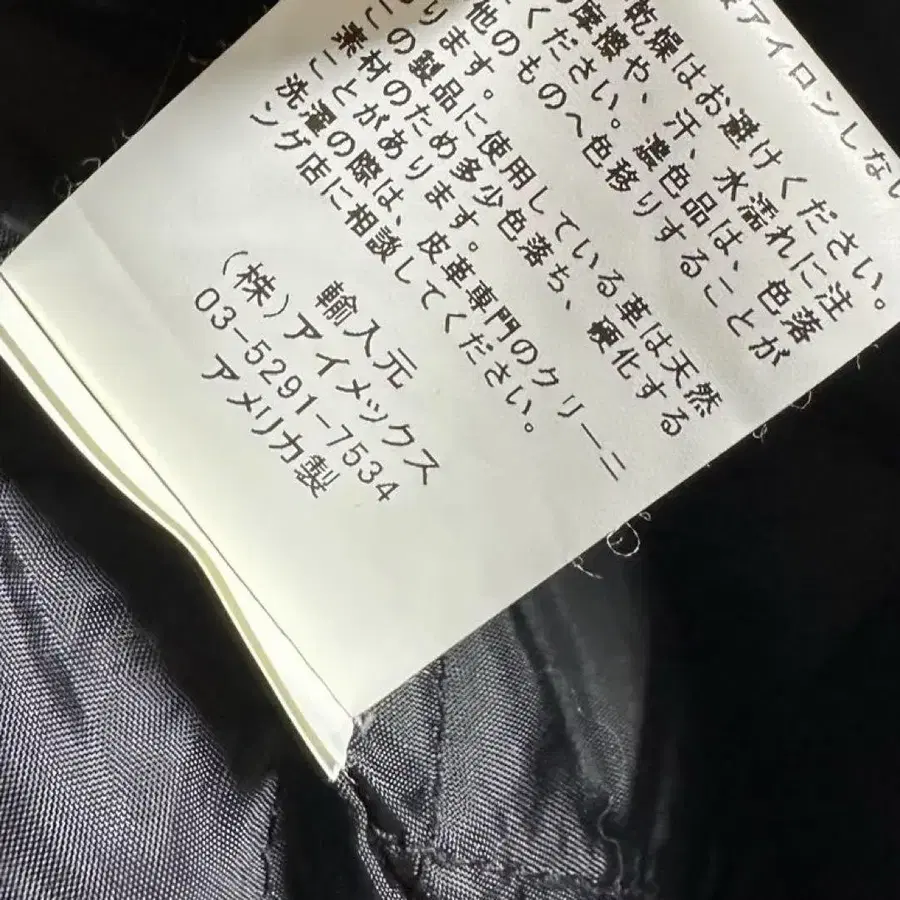 アイロンしない
乾燥はお避けください。
の摩擦や、汗、水濡れに注
ください。濃色品は、色落
他のものへ色移りすることが
ります。
この製品に使用している革は天然
素材のため多少色落ち、硬化する
ことがあります。
洗濯の際は、皮革専門のクリーニ
ング店に相談してください。
輸入元
(株)アイメックス
03-5291-7534
アメリカ製